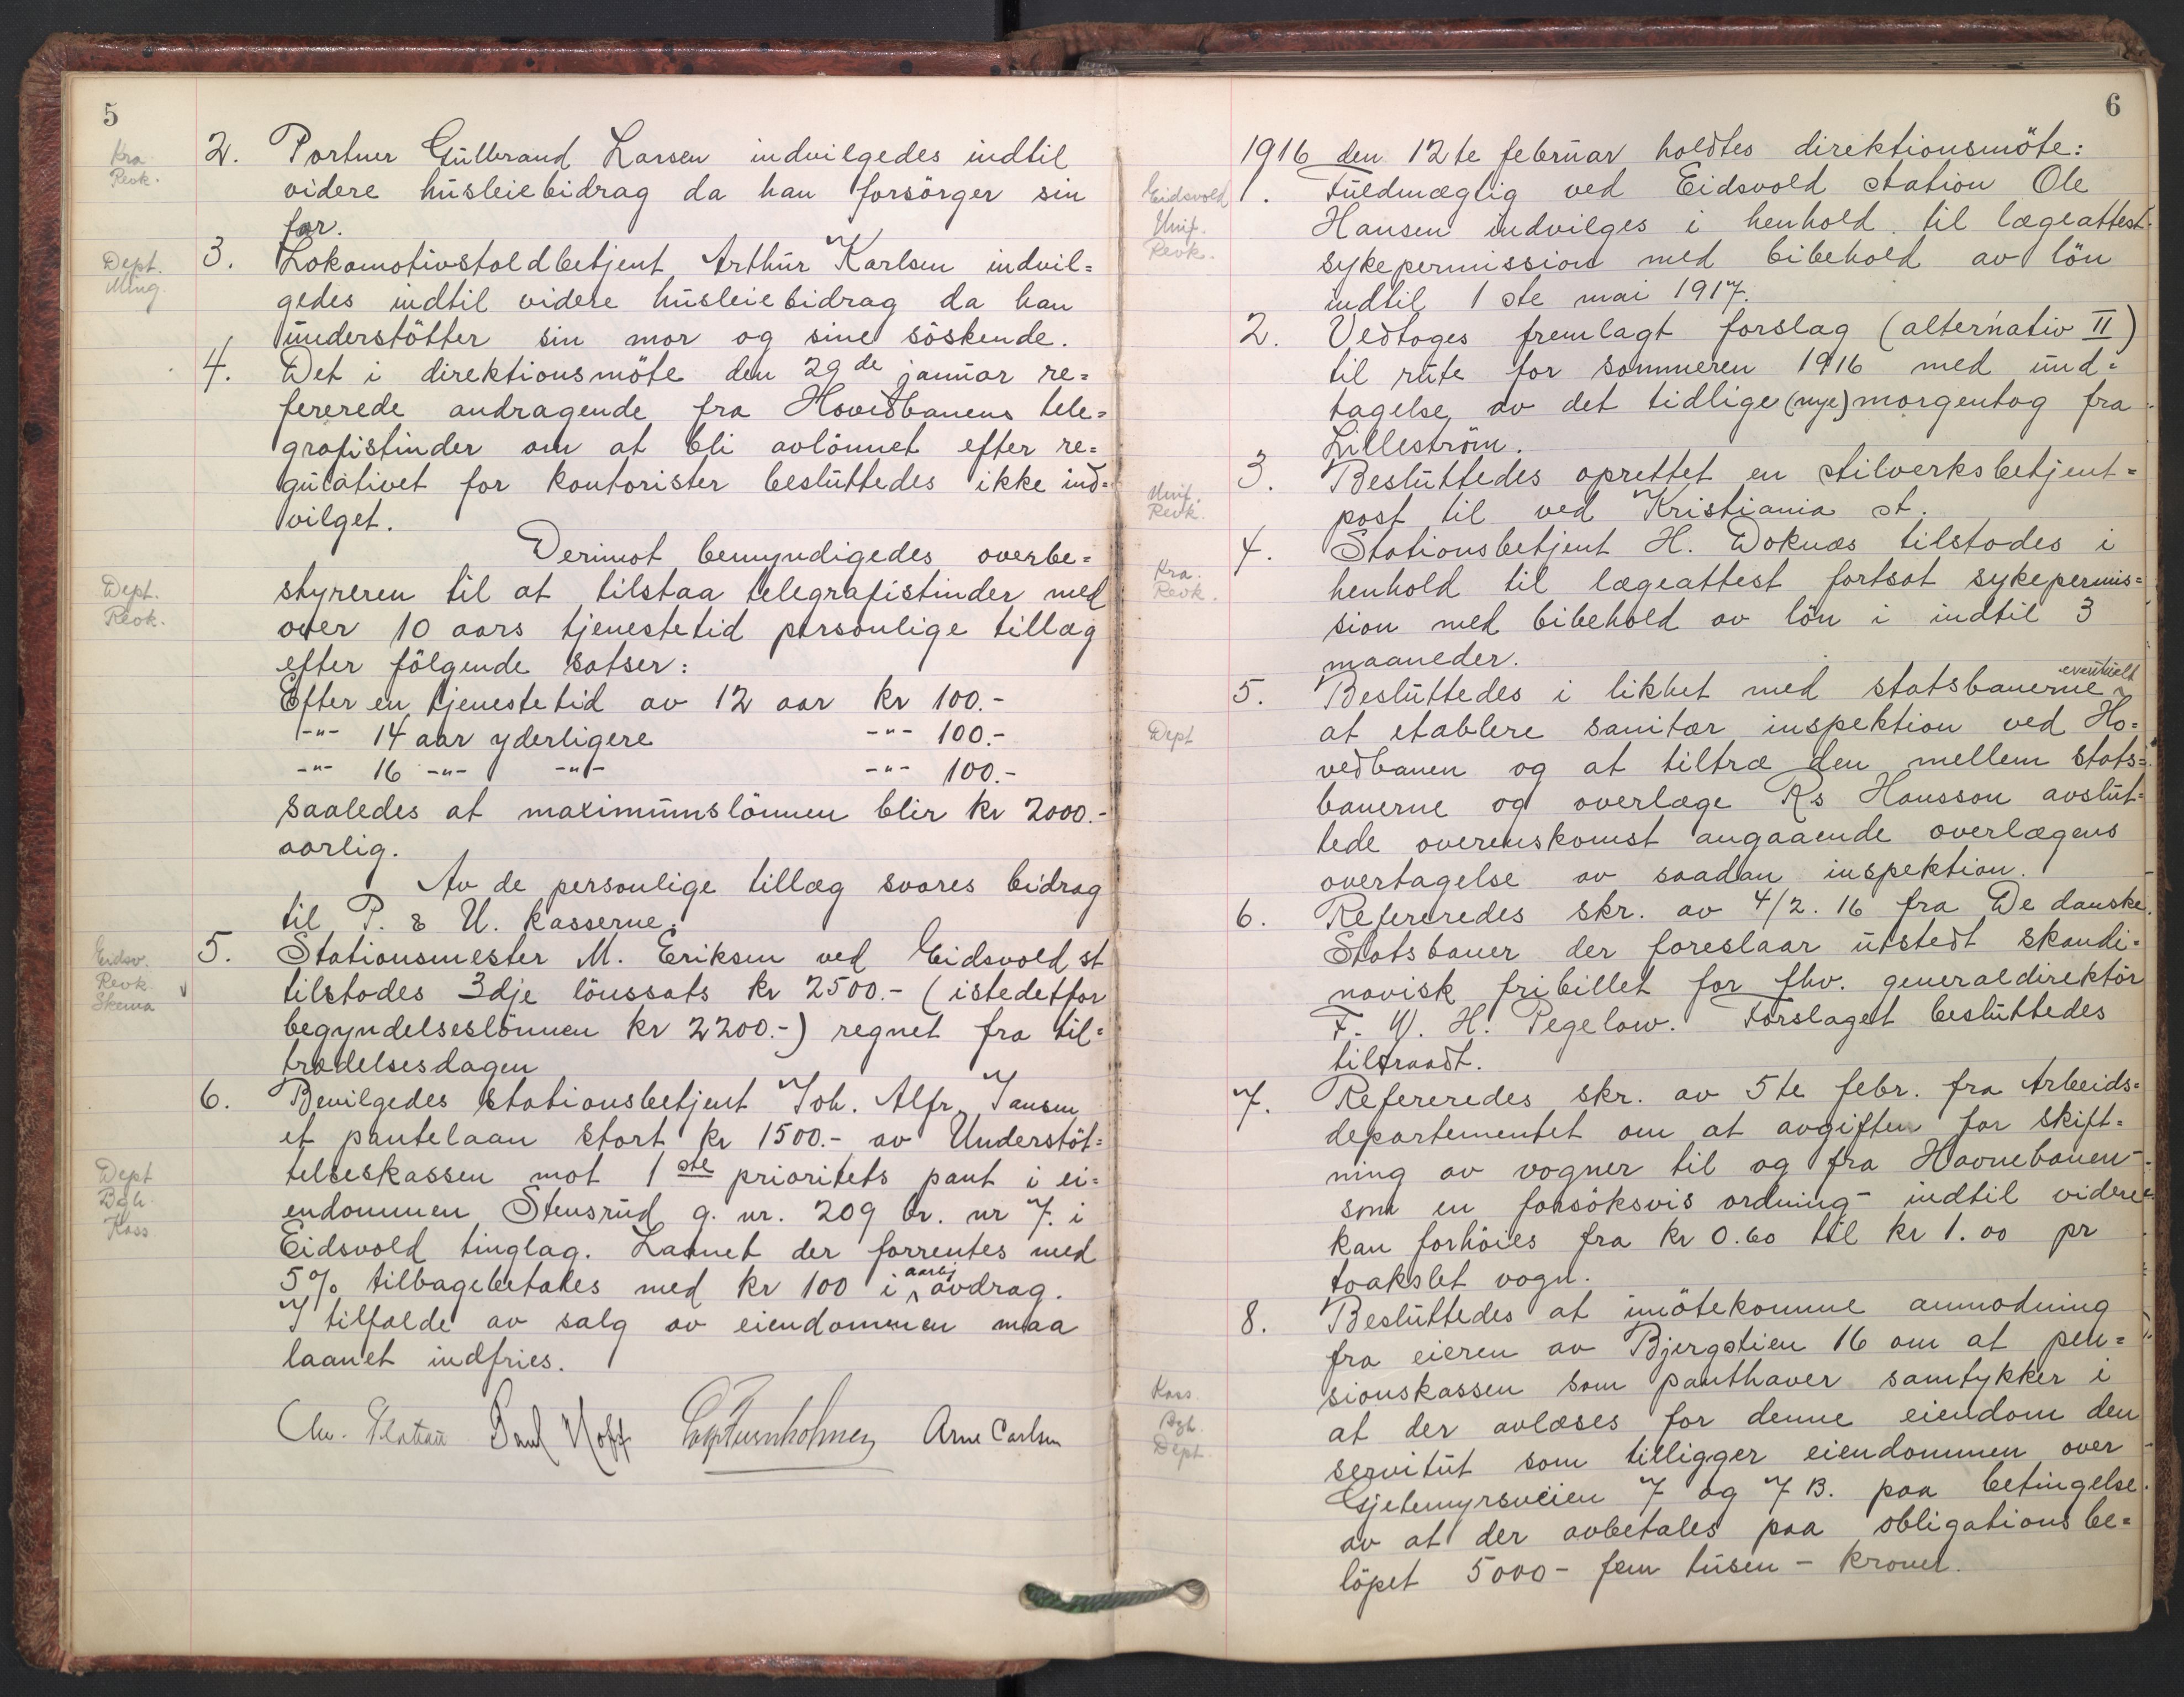 5
Kra.
Revk.
2. Portner Gulbrand Larsen indvilgedes indtil
videre husleiebidrag da han forsörger sin
far.
Dept.
Ming.
3. Lokomotivstaldbetjent Arthur Karlsen indvil=
gedes indtil videre husleiebidrag da han
understötter sin mor og sine söskende.
4. Det i direktionsmöte den 29de januar re=
fererede andragende fra Hovedbanens tele=
grafistinder om at bli avlönnet efter re=
gulativet for kontorister besluttedes ikke ind=
vilget.
Derimot bemyndigedes overbe=
Dept.
Revk.
styreren til at tilstaa telegrafistinder med
over 10 aars tjenestetid personlige tillæg
efter fölgende satser:
Efter en tjenestetid av 12 aar kr 100.-
-"- 14 aar yderligere -"- 100.-
-"- 16 -"- -"- -"- 100.-
saaledes at maximumslönnen blir kr 2000.-
aarlig.
Av de personlige tillæg svares bidrag
til P. & U. kasserne.
Eidsv.
Revk.
Skema
5. Stationsmester M. Eriksen ved Eidsvold st
tilstodes 3dje lönssats kr 2500.- (istedetfor
begyndelseslönnen kr 2200.-) regnet fra til=
trædelsesdagen
6. Bevilgedes stationsbetjent Joh. Alfr. Jansen
et pantelaan stort kr 1500.- av Understöt=
telseskassen mot 1ste prioritets pant i ei=
Dept
Bgh.
Kass
endommen Stensrud g. nr. 209 br. nr 7. i
Eidsvold tinglag. Laanet der forrentes med
5% tilbagebetales med kr 100 i aarlj avdrag.
I tilfælde av salg av eiendommen maa
laanet indfries.
Chr. Platou Paul Hoff Arne Carlsen
6
1916 den 12te februar holdtes direktionsmöte:
Eidsvold
Unif.
Revk.
1. Fuldmægtig ved Eidsvold station Ole
Hansen indvilges i henhold til lægeattest
sykepermission med bibehold av lön
indtil 1ste mai 1917.
2. Vedtoges fremlagt forslag (alternativ II)
til rute for sommeren 1916 med und=
tagelse av det tidlige (nye) morgentog fra
Lilleström.
Unif.
Revk.
3. Besluttedes oprettet en stilverksbetjent=
post til ved Kristiania st.
Kra.
Revk.
4. Stationsbetjent H. Doknæs tilstodes i
henhold til lægeattest fortsat sykepermis=
sion med bibehold av lön i indtil 3
maaneder.
5. Besluttedes i likhet med statsbanerne eventuelt
Dept
at etablere sanitær inspektion ved Ho=
vedbanen og at tiltræ den mellem stats=
banerne og overlæge Ks Hansson avslut=
tede overenskomst angaaende overlægens
overtagelse av saadan inspektion.
6. Refereredes skr. av 4/2. 16 fra De danske
Statsbaner der foreslaar utstedt skandi=
navisk fribillet for fhv. generaldirektör
F. W. H. Pegelow. Forslaget besluttedes
tiltraadt.
7. Refereredes skr. av 5te febr. fra Arbeids=
departementet om at avgiften for skift=
ning av vogner til og fra Havnebanen -
som en forsöksvis ordning - indtil videre
kan forhöies fra kr 0.60 til kr 1.00 pr
toakslet vogn.
8. Besluttedes at imötekomme anmodning
fra eieren av Bjergstien 16 om at pen=
Kass.
Bgh.
Dept.
sionskassen som panthaver samtykker i
at der avlæses for denne eiendom den
servitut som tilligger eiendommen over
Gjetemyrsveien 7 og 7 B. paa betingelse
av at der avbetales paa obligationsbe=
löpet 5000 - fem tusen - kroner.